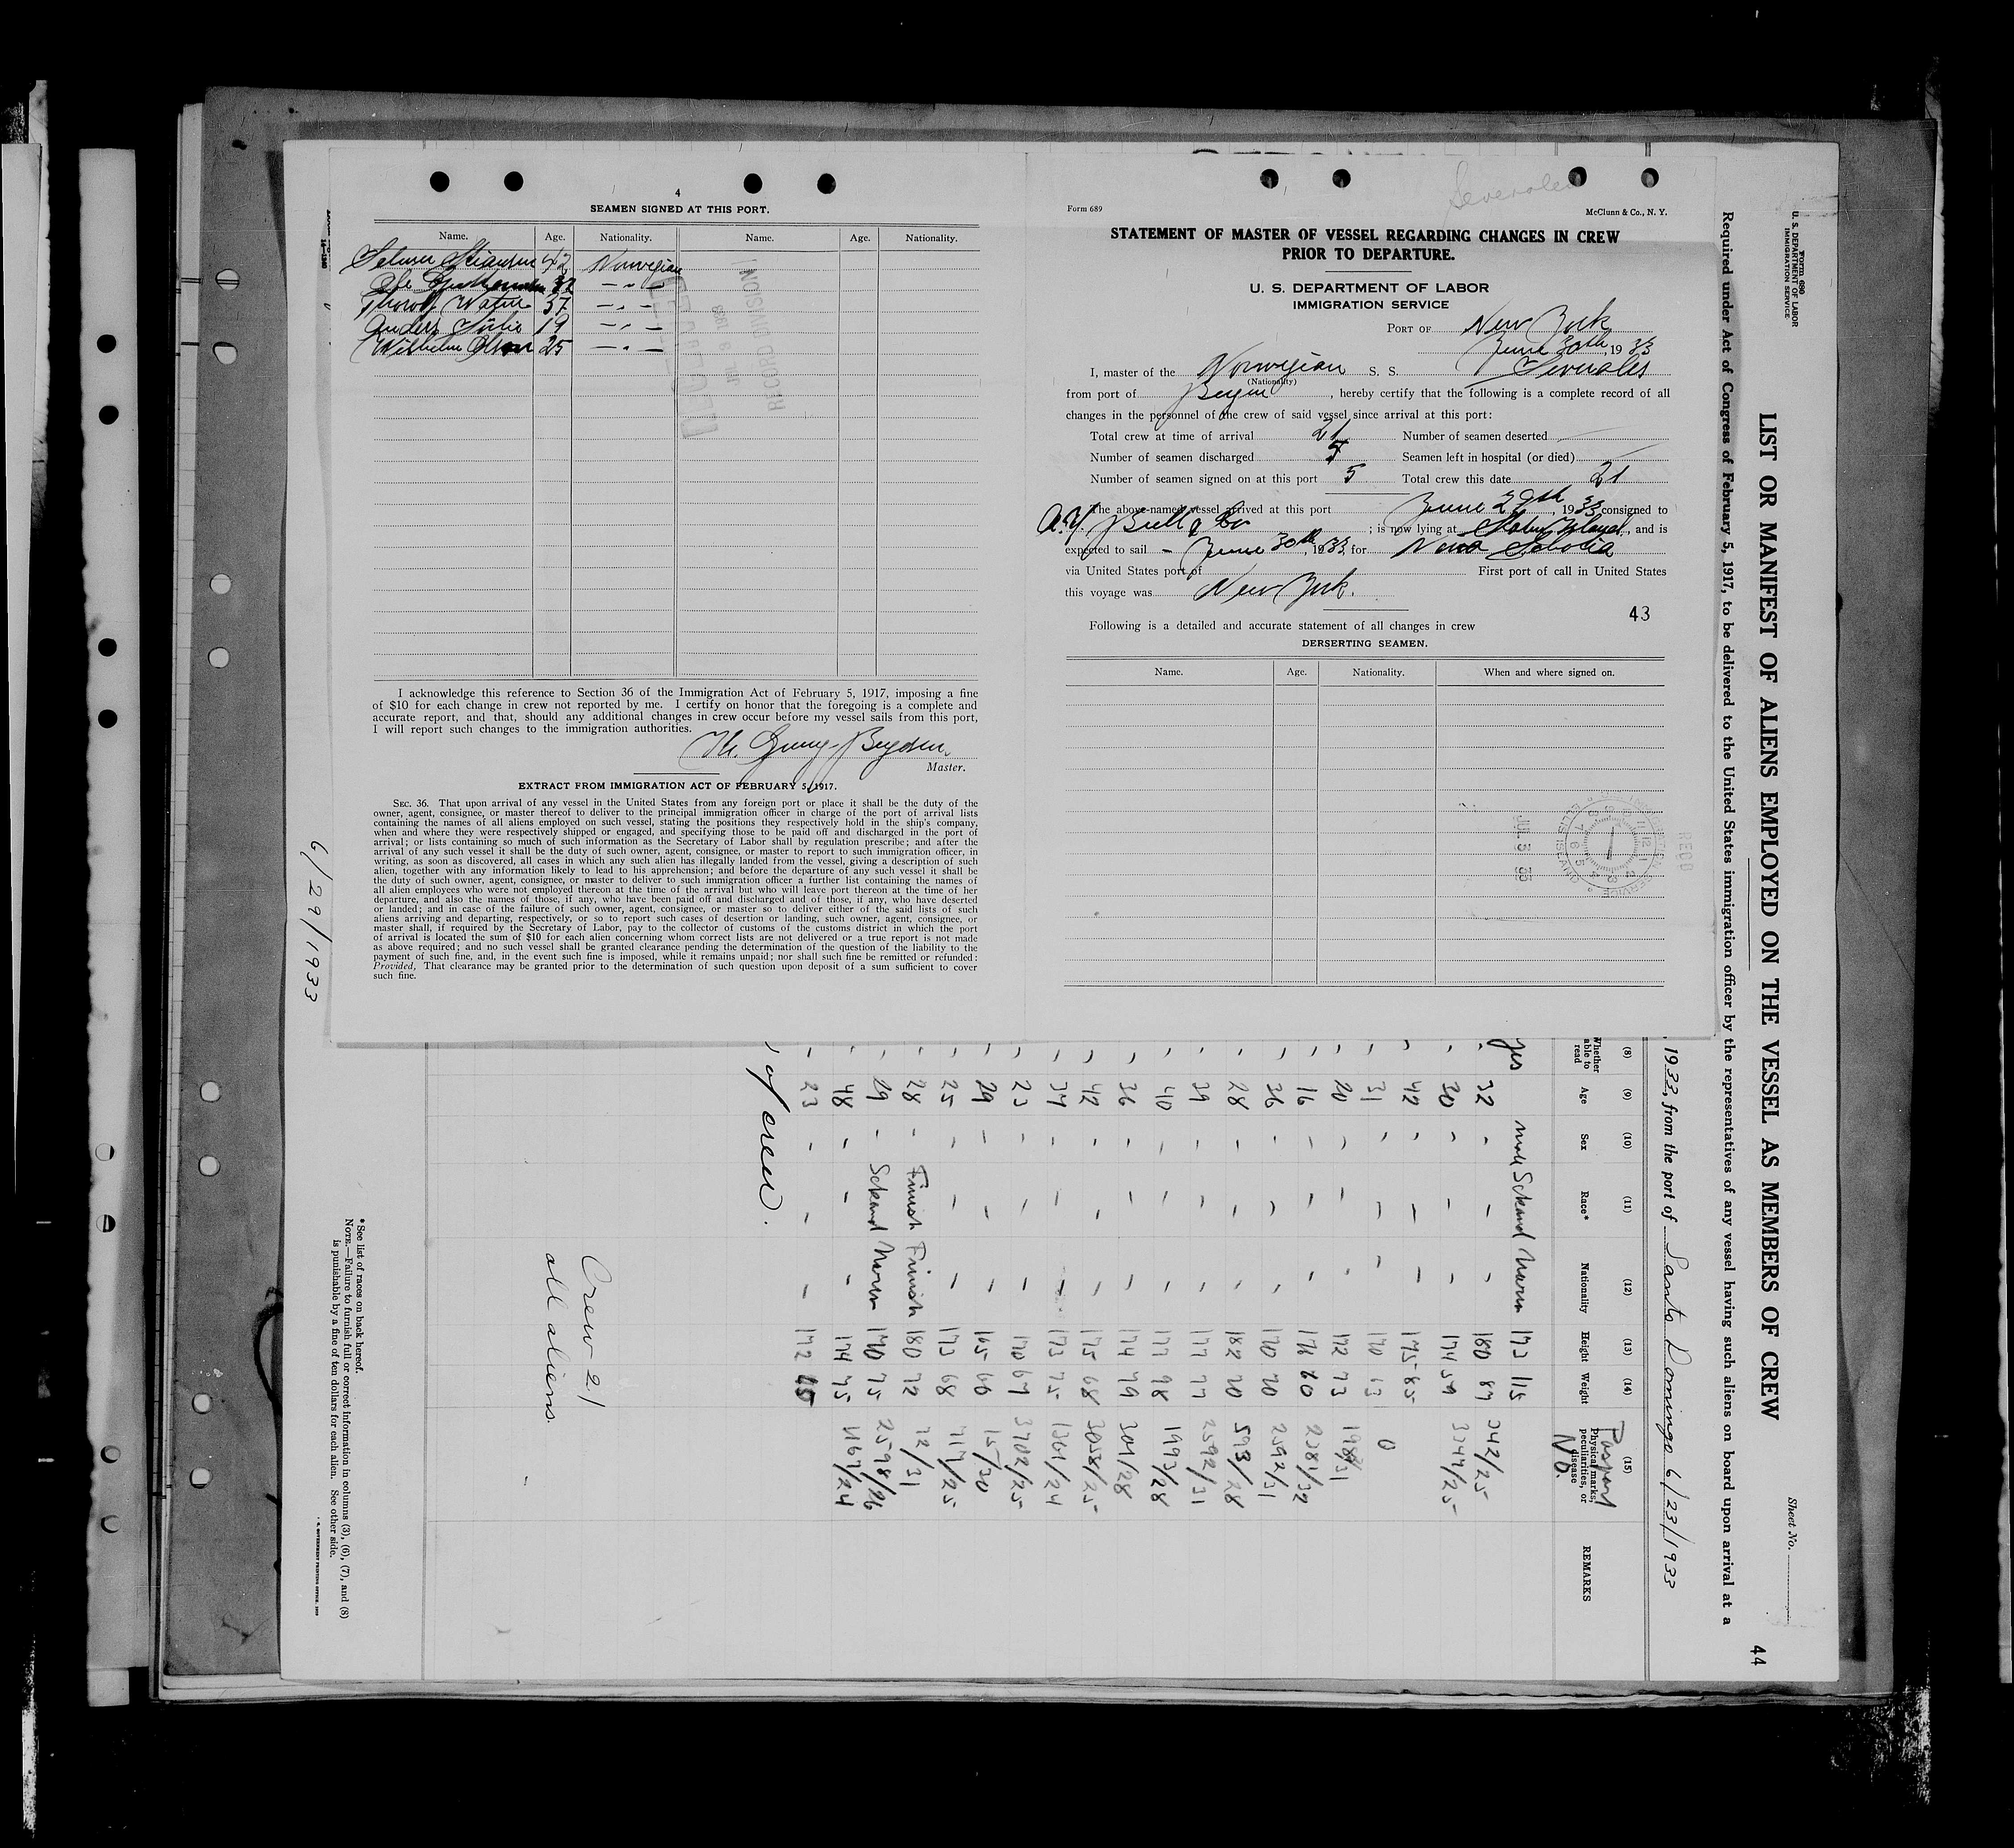 4
SEAMEN SIGNED AT THIS PORT.
Name. Age. Nationality. Name. Age. Nationality.
42 Norwegian
32 — " —
37 — " —
Anders 19 — " —
Wilhelm Olsen 25 — " —
RECORD DIVISION
I acknowledge this reference to Section 36 of the Immigration Act of February 5, 1917, imposing a fine
of $10 for each change in crew not reported by me. I certify on honor that the foregoing is a complete and
accurate report, and that, should any additional changes in crew occur before my vessel sails from this port,
I will report such changes to the immigration authorities.
Master.
EXTRACT FROM IMMIGRATION ACT OF FEBRUARY 5, 1917.
SEC. 36. That upon arrival of any vessel in the United States from any foreign port or place it shall be the duty of the
owner, agent, consignee, or master thereof to deliver to the principal immigration officer in charge of the port of arrival lists
containing the names of all aliens employed on such vessel, stating the positions they respectively hold in the ship's company,
when and where they were respectively shipped or engaged, and specifying those to be paid off and discharged in the port of
arrival; or lists containing so much of such information as the Secretary of Labor shall by regulation prescribe; and after the
arrival of any such vessel it shall be the duty of such owner, agent, consignee, or master to report to such immigration officer, in
writing, as soon as discovered, all cases in which any such alien has illegally landed from the vessel, giving a description of such
alien, together with any information likely to lead to his apprehension; and before the departure of any such vessel it shall be
the duty of such owner, agent, consignee, or master to deliver to such immigration officer a further list containing the names of
all alien employees who were not employed thereon at the time of the arrival but who will leave port thereon at the time of her
departure, and also the names of those, if any, who have been paid off and discharged and of those, if any, who have deserted
or landed; and in case of the failure of such owner, agent, consignee, or master so to deliver either of the said lists of such
aliens arriving and departing, respectively, or so to report such cases of desertion or landing, such owner, agent, consignee, or
master shall, if required by the Secretary of Labor, pay to the collector of customs of the customs district in which the port
of arrival is located the sum of $10 for each alien concerning whom correct lists are not delivered or a true report is not made
as above required; and no such vessel shall be granted clearance pending the determination of the question of the liability to the
payment of such fine, and, in the event such fine is imposed, while it remains unpaid; nor shall such fine be remitted or refunded:
Provided, That clearance may be granted prior to the determination of such question upon deposit of a sum sufficient to cover
such fine.
6/29/1933
Severoles
Form 689 McClunn & Co., N. Y.
STATEMENT OF MASTER OF VESSEL REGARDING CHANGES IN CREW
PRIOR TO DEPARTURE.
U. S. DEPARTMENT OF LABOR
IMMIGRATION SERVICE
PORT OF New York
June 30th, 1933
I, master of the Norwegian S. S. Severoles
(Nationality)
from port of Bergen, hereby certify that the following is a complete record of all
changes in the personnel of the crew of said vessel since arrival at this port:
Total crew at time of arrival 21 Number of seamen deserted
Number of seamen discharged 5 Seamen left in hospital (or died)
Number of seamen signed on at this port 5 Total crew this date 21
The above-named vessel arrived at this port June 29th, 1933 consigned to
A. H. Bull & Co; is now lying at Staten Island, and is
expected to sail - June 30th, 1933, for Nova Schotia
via United States port of First port of call in United States
this voyage was New York.
43
Following is a detailed and accurate statement of all changes in crew
DERSERTING SEAMEN.
Name. Age. Nationality. When and where signed on.
REC'D
Form 680
U. S. DEPARTMENT OF LABOR
IMMIGRATION SERVICE
Sheet No.
44
LIST OR MANIFEST OF ALIENS EMPLOYED ON THE VESSEL AS MEMBERS OF CREW
Required under Act of Congress of February 5, 1917, to be delivered to the United States immigration officer by the representatives of any vessel having such aliens on board upon arrival at a
, 1933, from the port of Santo Domingo 6/23/1933
(8) (9) (10) (11) (12) (13) (14) (15)
Whether able to read Age Sex Race* Nationality Height Weight Physical marks, peculiarities, or disease REMARKS
Pasport No.
yes male Schand Norw 173 115
32 180 89 3242/25
30 174 59 3344/25
42 175 85
31 170 63 0
20 172 73 198/31
16 176 60 2381/32
36 170 70 2592/31
28 182 70 593/28
39 177 77 2592/31
40 177 98 1993/28
36 174 79 301/28
42 175 68 3058/25
37 173 75 1301/24
23 170 67 3702/25
29 165 66 15/30
25 173 68 719/25
28 Finish Finish 180 72 12/31
29 Schand Norw 170 75 2598/26
48 174 75 1167/24
23 172 65
of crew.
Crew 21
all aliens.
*See list of races on back hereof.
NOTE.—Failure to furnish full or correct information in columns (3), (6), (7), and (8)
is punishable by a fine of ten dollars for each alien. See other side.